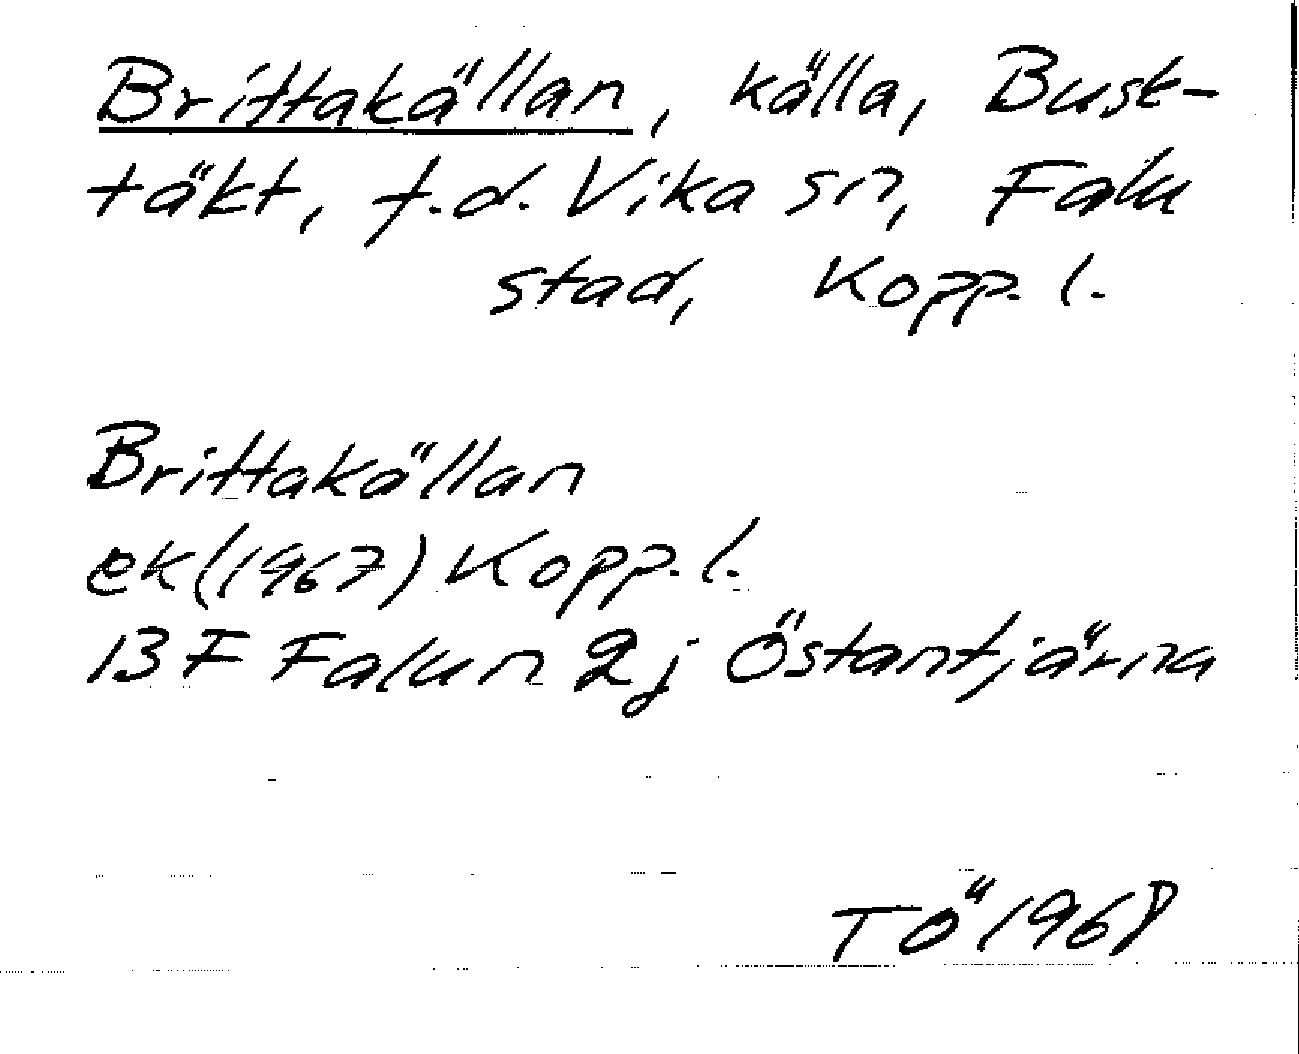 Brittakällan, källa, Busk-
täkt, f.d. Vika sn, Falu
stad, Kopp. l.
Brittakällan
ek (1967) Kopp. l.
13 F Falun 2j Östantjärna
TÖ 1968